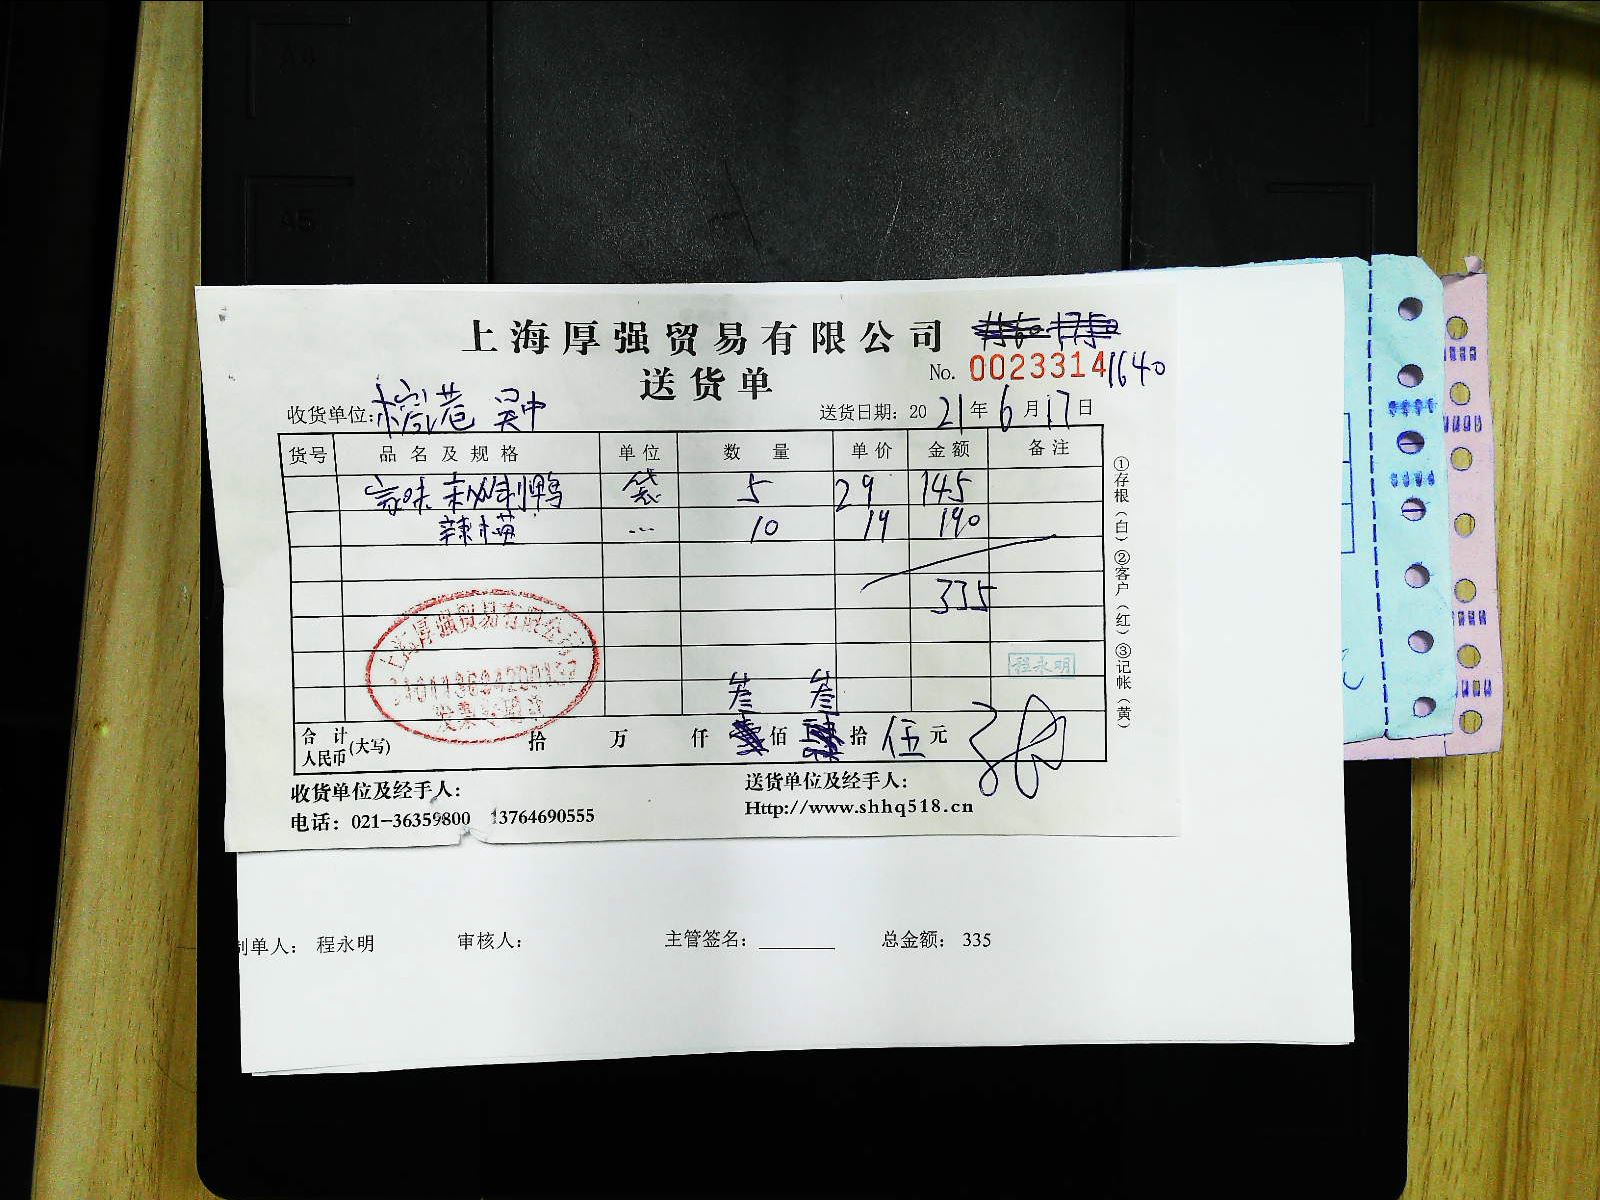 上海厚强贸易有限公司
送货单
No. 0023314 1640
收货单位: 巷 吴中
送货日期: 2021年6月17日
货号 品名及规格 单位 数量 单价 金额 备注
味 秘制鸭 袋 5 29 145
辣 ... 10 19 190
335
上海厚强贸易有限公司
发票专用章
程永明
叁 叁
合计人民币(大写) 拾 万 仟 佰 拾 伍 元
①存根(白) ②客户(红) ③记帐(黄)
收货单位及经手人:
送货单位及经手人:
电话: 021-36359800 13764690555
Http://www.shhq518.cn
制单人: 程永明 审核人: 主管签名: ______ 总金额: 335
A4
A5